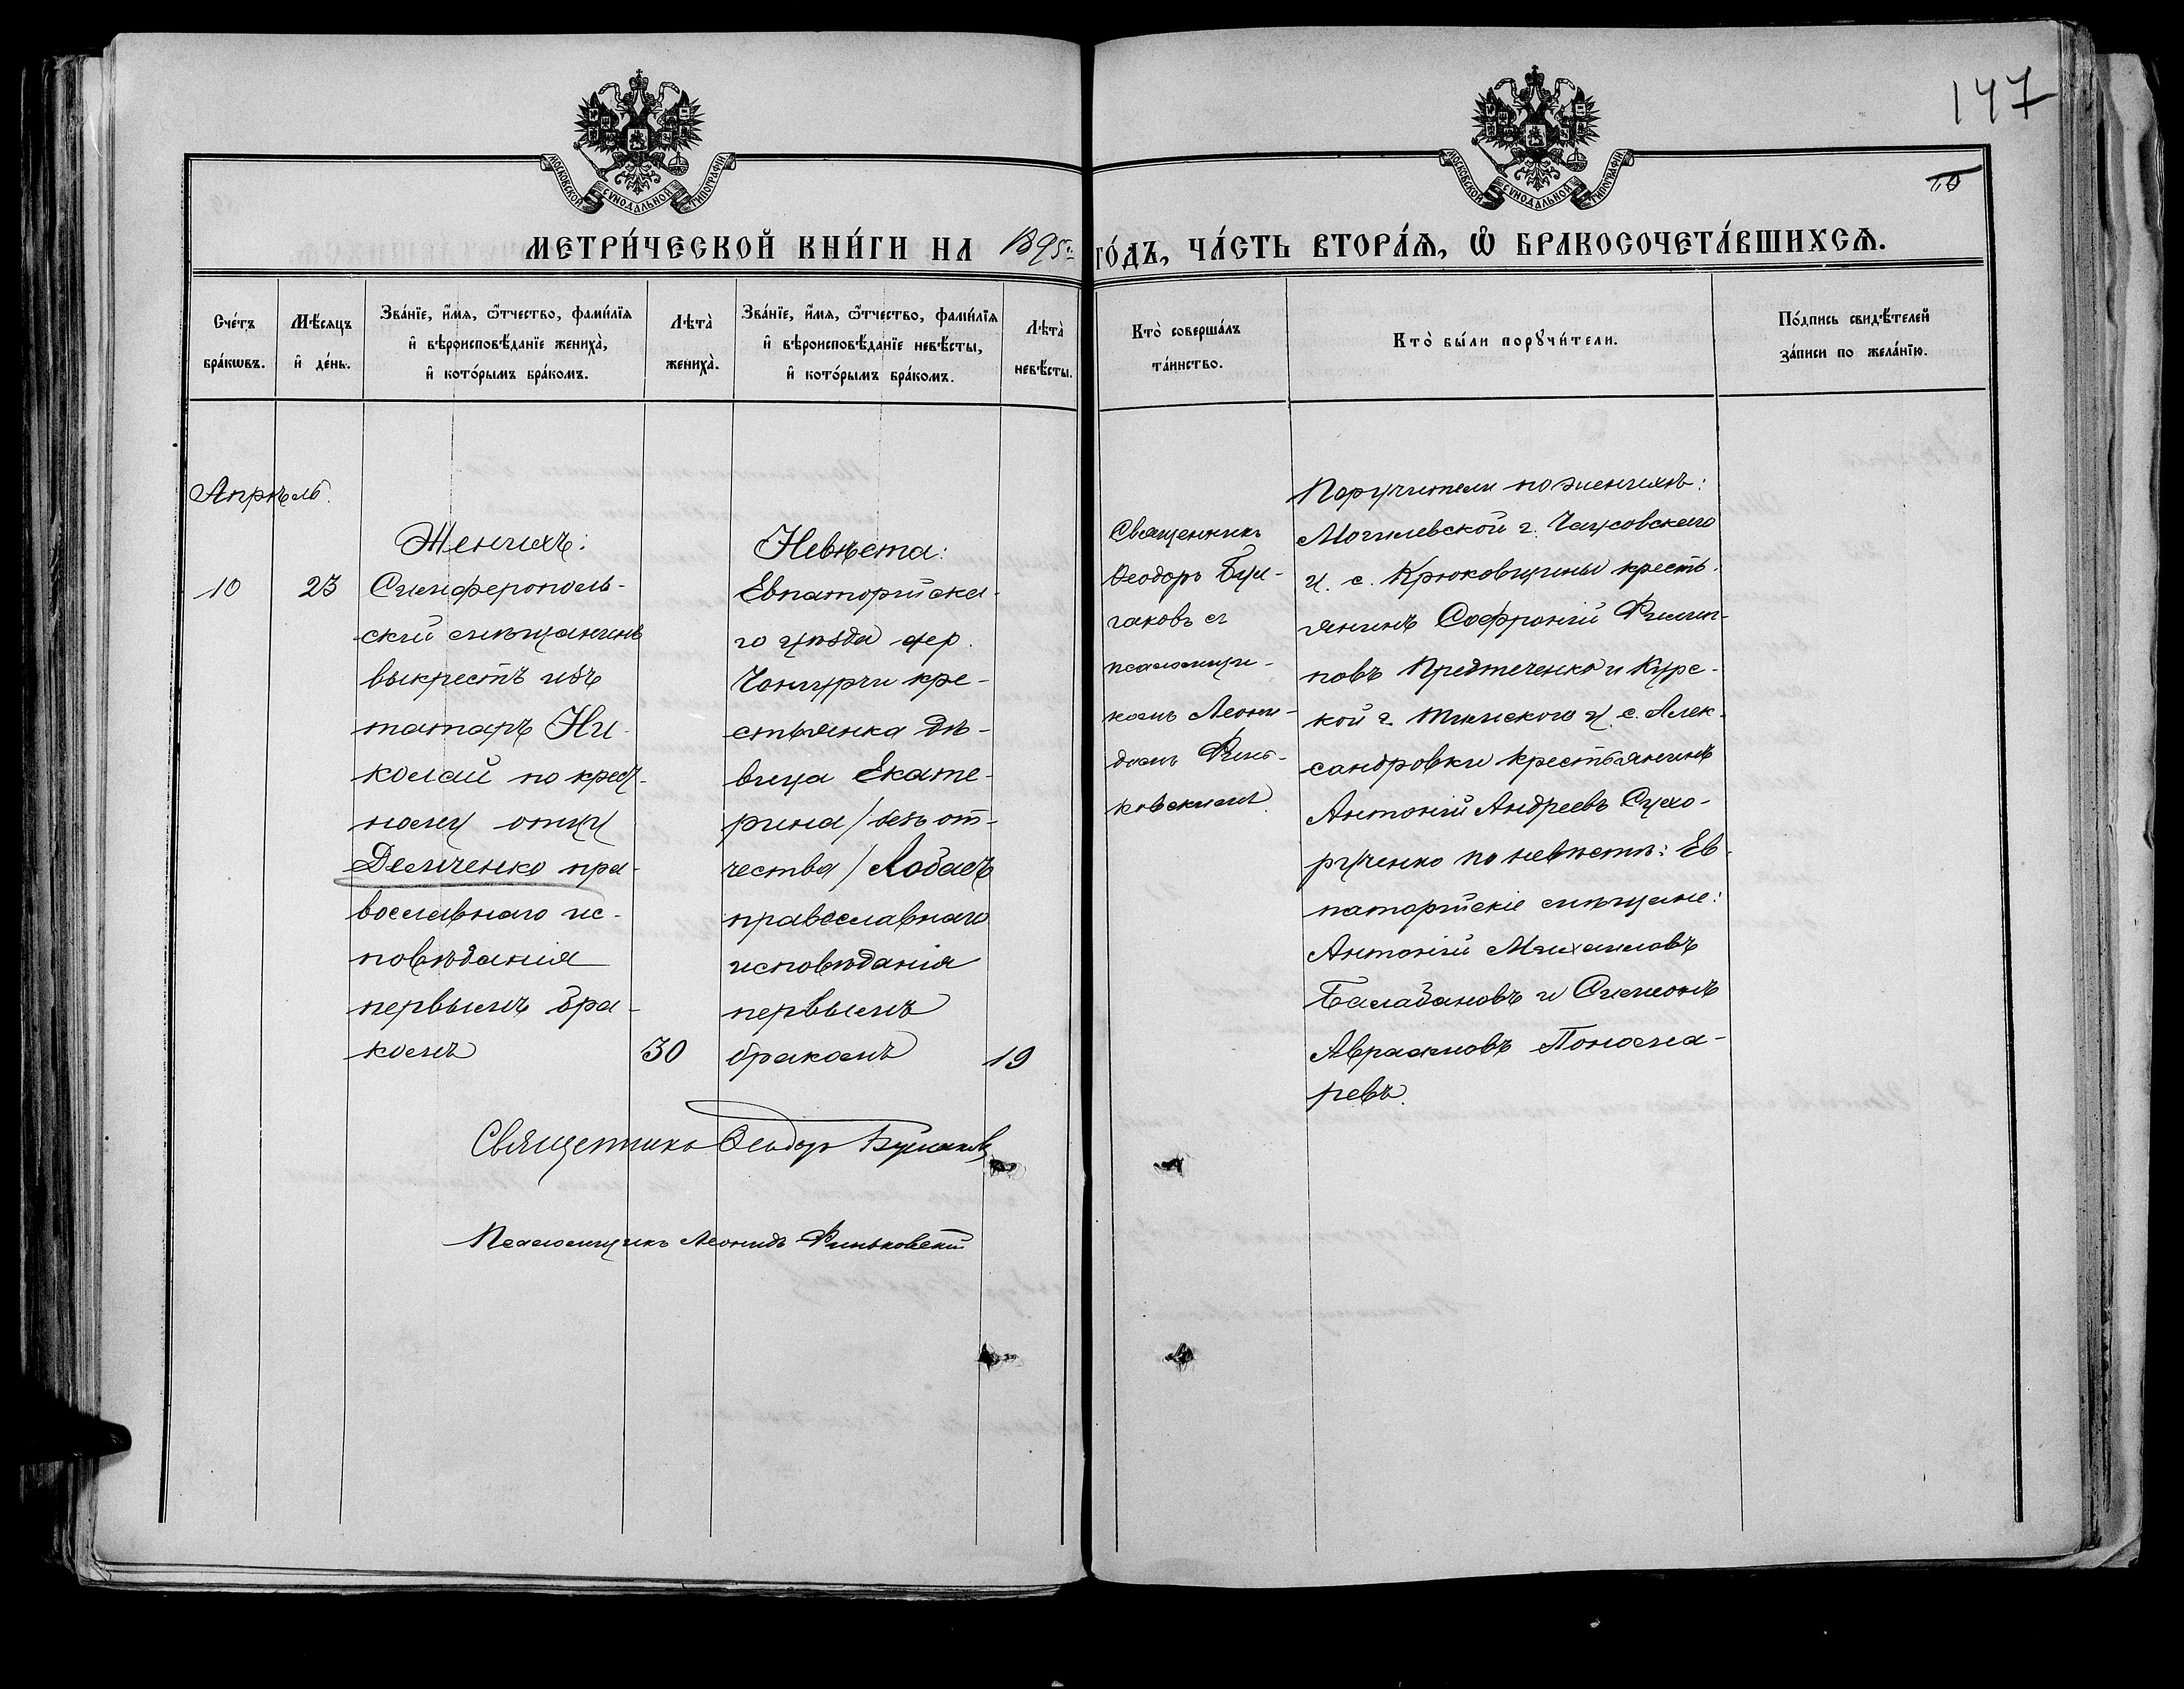 147
10
МОСКОВСКОЙ СУНОДАЛЬНОЙ ТИПОГРАФІИ
МОСКОВСКОЙ СУНОДАЛЬНОЙ ТИПОГРАФІИ
МЕТРИ́ЧЕСКОЙ КНИ́ГИ НА 1895й
ГО́ДЪ, ЧА́СТЬ ВТОРА́Ѧ, Ѽ БРАКОСОЧЕТА́ВШИХСѦ.
Сче́тъ
бра́кѡвъ.
Мѣ́сѧцъ
и҆ де́нь.
Зва́нїе, и҆́мѧ, ѻ҆́тчество, фами́лїѧ
и҆ вѣроисповѣ́данїе жениха̀,
и҆ кото́рымъ бра́комъ.
Лѣта̀
жениха̀.
Зва́нїе, и҆́мѧ, ѻ҆́тчество, фами́лїѧ
и҆ вѣроисповѣ́данїе невѣ́сты,
и҆ кото́рымъ бра́комъ.
Лѣта̀
невѣ́сты.
Кто̀ соверша́лъ
та́инство.
Кто̀ бы́ли порꙋчи́тели.
По́дпись свидѣ́телей
за́писи по жела́нїю.
Апрѣль.
10
23
Женихъ:
Симферополь-
скій мѣщанинъ
выкрестъ изъ
татаръ Ни-
колай по крест-
ному отцу
Демченко пра-
вославнаго ис-
повѣданія
первымъ бра-
комъ
30
Невѣста:
Евпаторійска-
го уѣзда дер.
Чонгурчи кре-
стьянка дѣ-
вица Екате-
рина /безъ от-
чества/ Лобачъ
православнаго
исповѣданія
первымъ
бракомъ
19
Священникъ
Ѳеодоръ Бул-
гаковъ съ
псаломщи-
комъ Леони-
домъ Финь-
ковскимъ
Поручители по женихѣ:
Могилевской г. Чаусовскаго
у. с. Крюковщины кресть-
янинъ Софроній Филип-
повъ Предтеченко и Курс-
кой г. Тимскаго у. с. Алек-
сандровки крестьянинъ
Антоній Андреевъ Сухо-
рученко по невѣстѣ: Ев-
паторійскіе мѣщане:
Антоній Михаиловъ
Балабановъ и Симеонъ
Авраамовъ Понома-
ревъ.
Священникъ Ѳеодоръ Булгаковъ
Псаломщикъ Леонидъ Финьковскій